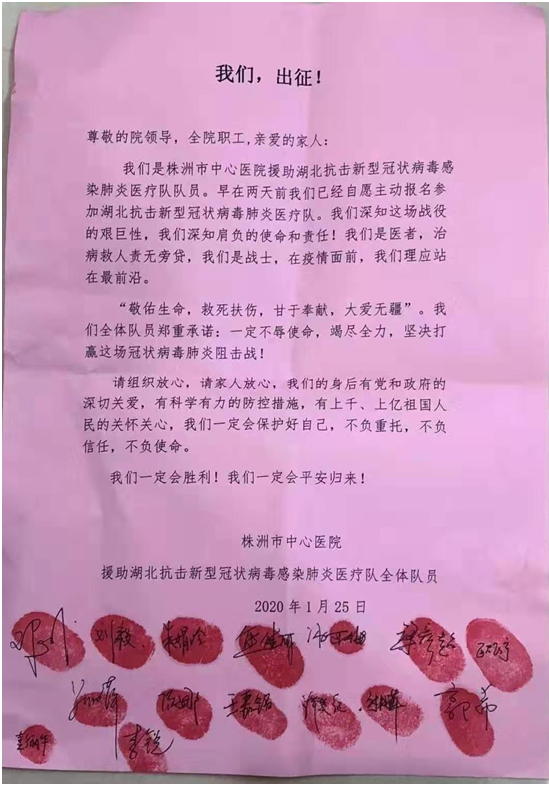 我们，出征！
尊敬的院领导，全院职工,亲爱的家人：
我们是株洲市中心医院援助湖北抗击新型冠状病毒感
染肺炎医疗队队员。早在两天前我们已经自愿主动报名参
加湖北抗击新型冠状病毒肺炎医疗队。我们深知这场战役
的艰巨性，我们深知肩负的使命和责任！我们是医者，治
病救人责无旁贷，我们是战士，在疫情面前，我们理应站
在最前沿。
“敬佑生命，救死扶伤，甘于奉献，大爱无疆”。我
们全体队员郑重承诺：一定不辱使命，竭尽全力，坚决打
赢这场冠状病毒肺炎阻击战！
请组织放心，请家人放心，我们的身后有党和政府的
深切关爱，有科学有力的防控措施，有上千、上亿祖国人
民的关怀关心，我们一定会保护好自己，不负重托，不负
信任，不负使命。
我们一定会胜利！我们一定会平安归来！
株洲市中心医院
援助湖北抗击新型冠状病毒感染肺炎医疗队全体队员
2020年1月25日
刘毅
郭希
李锐